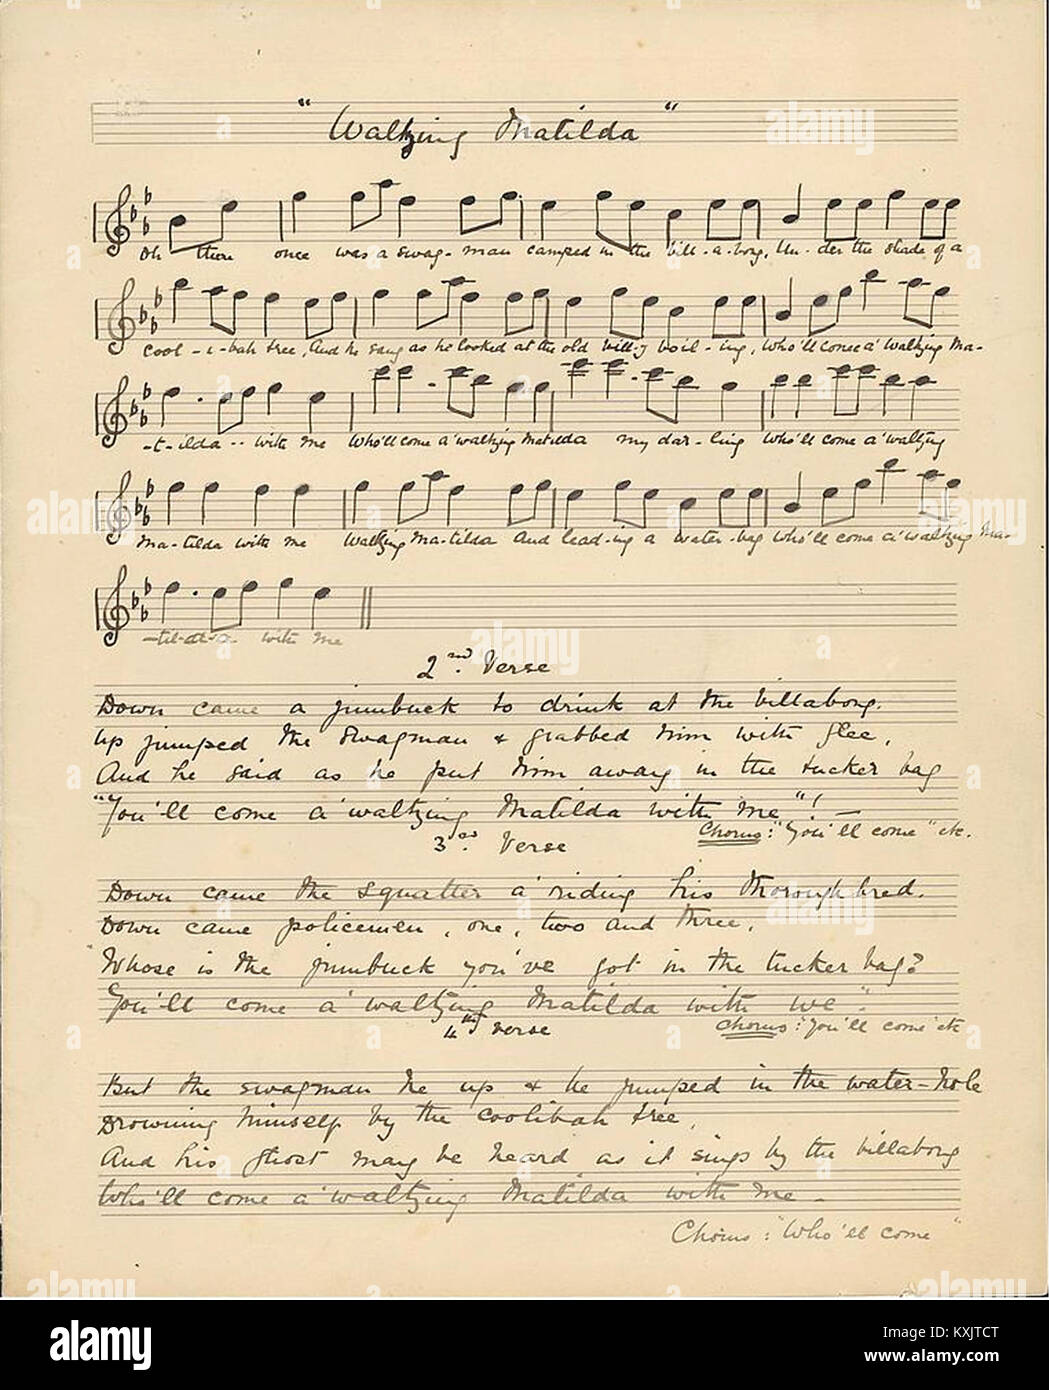 "Waltzing Matilda"
Oh there once was a swag-man camped in the bill-a-bong, Un-der the shade of a
Cool-i-bah tree, And he sang as he looked at the old billy boil-ing, Who'll come a' waltzing Ma-
-t-ilda -- with me Who'll come a' waltzing Matilda my dar-ling Who'll come a' waltzing
Ma-tilda with me Waltzing Ma-tilda And lead-ing a water-bag Who'll come a' waltzing Ma-
with me
2nd. Verse
Down came a jumbuck to drink at the billabong.
Up jumped the swagman & grabbed him with glee,
And he said as he put him away in the tucker bag
"You'll come a' waltzing Matilda with me"! —
Chorus: "You'll come" etc.
3rd. Verse
Down came the squatter a' riding his thoroughbred.
Down came policemen, one, two and three,
Whose is the jumbuck you've got in the tucker bag?
You'll come a' waltzing Matilda with we".
Chorus: "You'll come" etc
4th verse
But the swagman he up & he jumped in the water-hole
Drowning himself by the coolibah tree,
And his ghost may be heard as it sings by the billabong
Who'll come a' waltzing Matilda with me -
Chorus: "Who'll come"
alamy
Image ID: KXJTCT
www.alamy.com